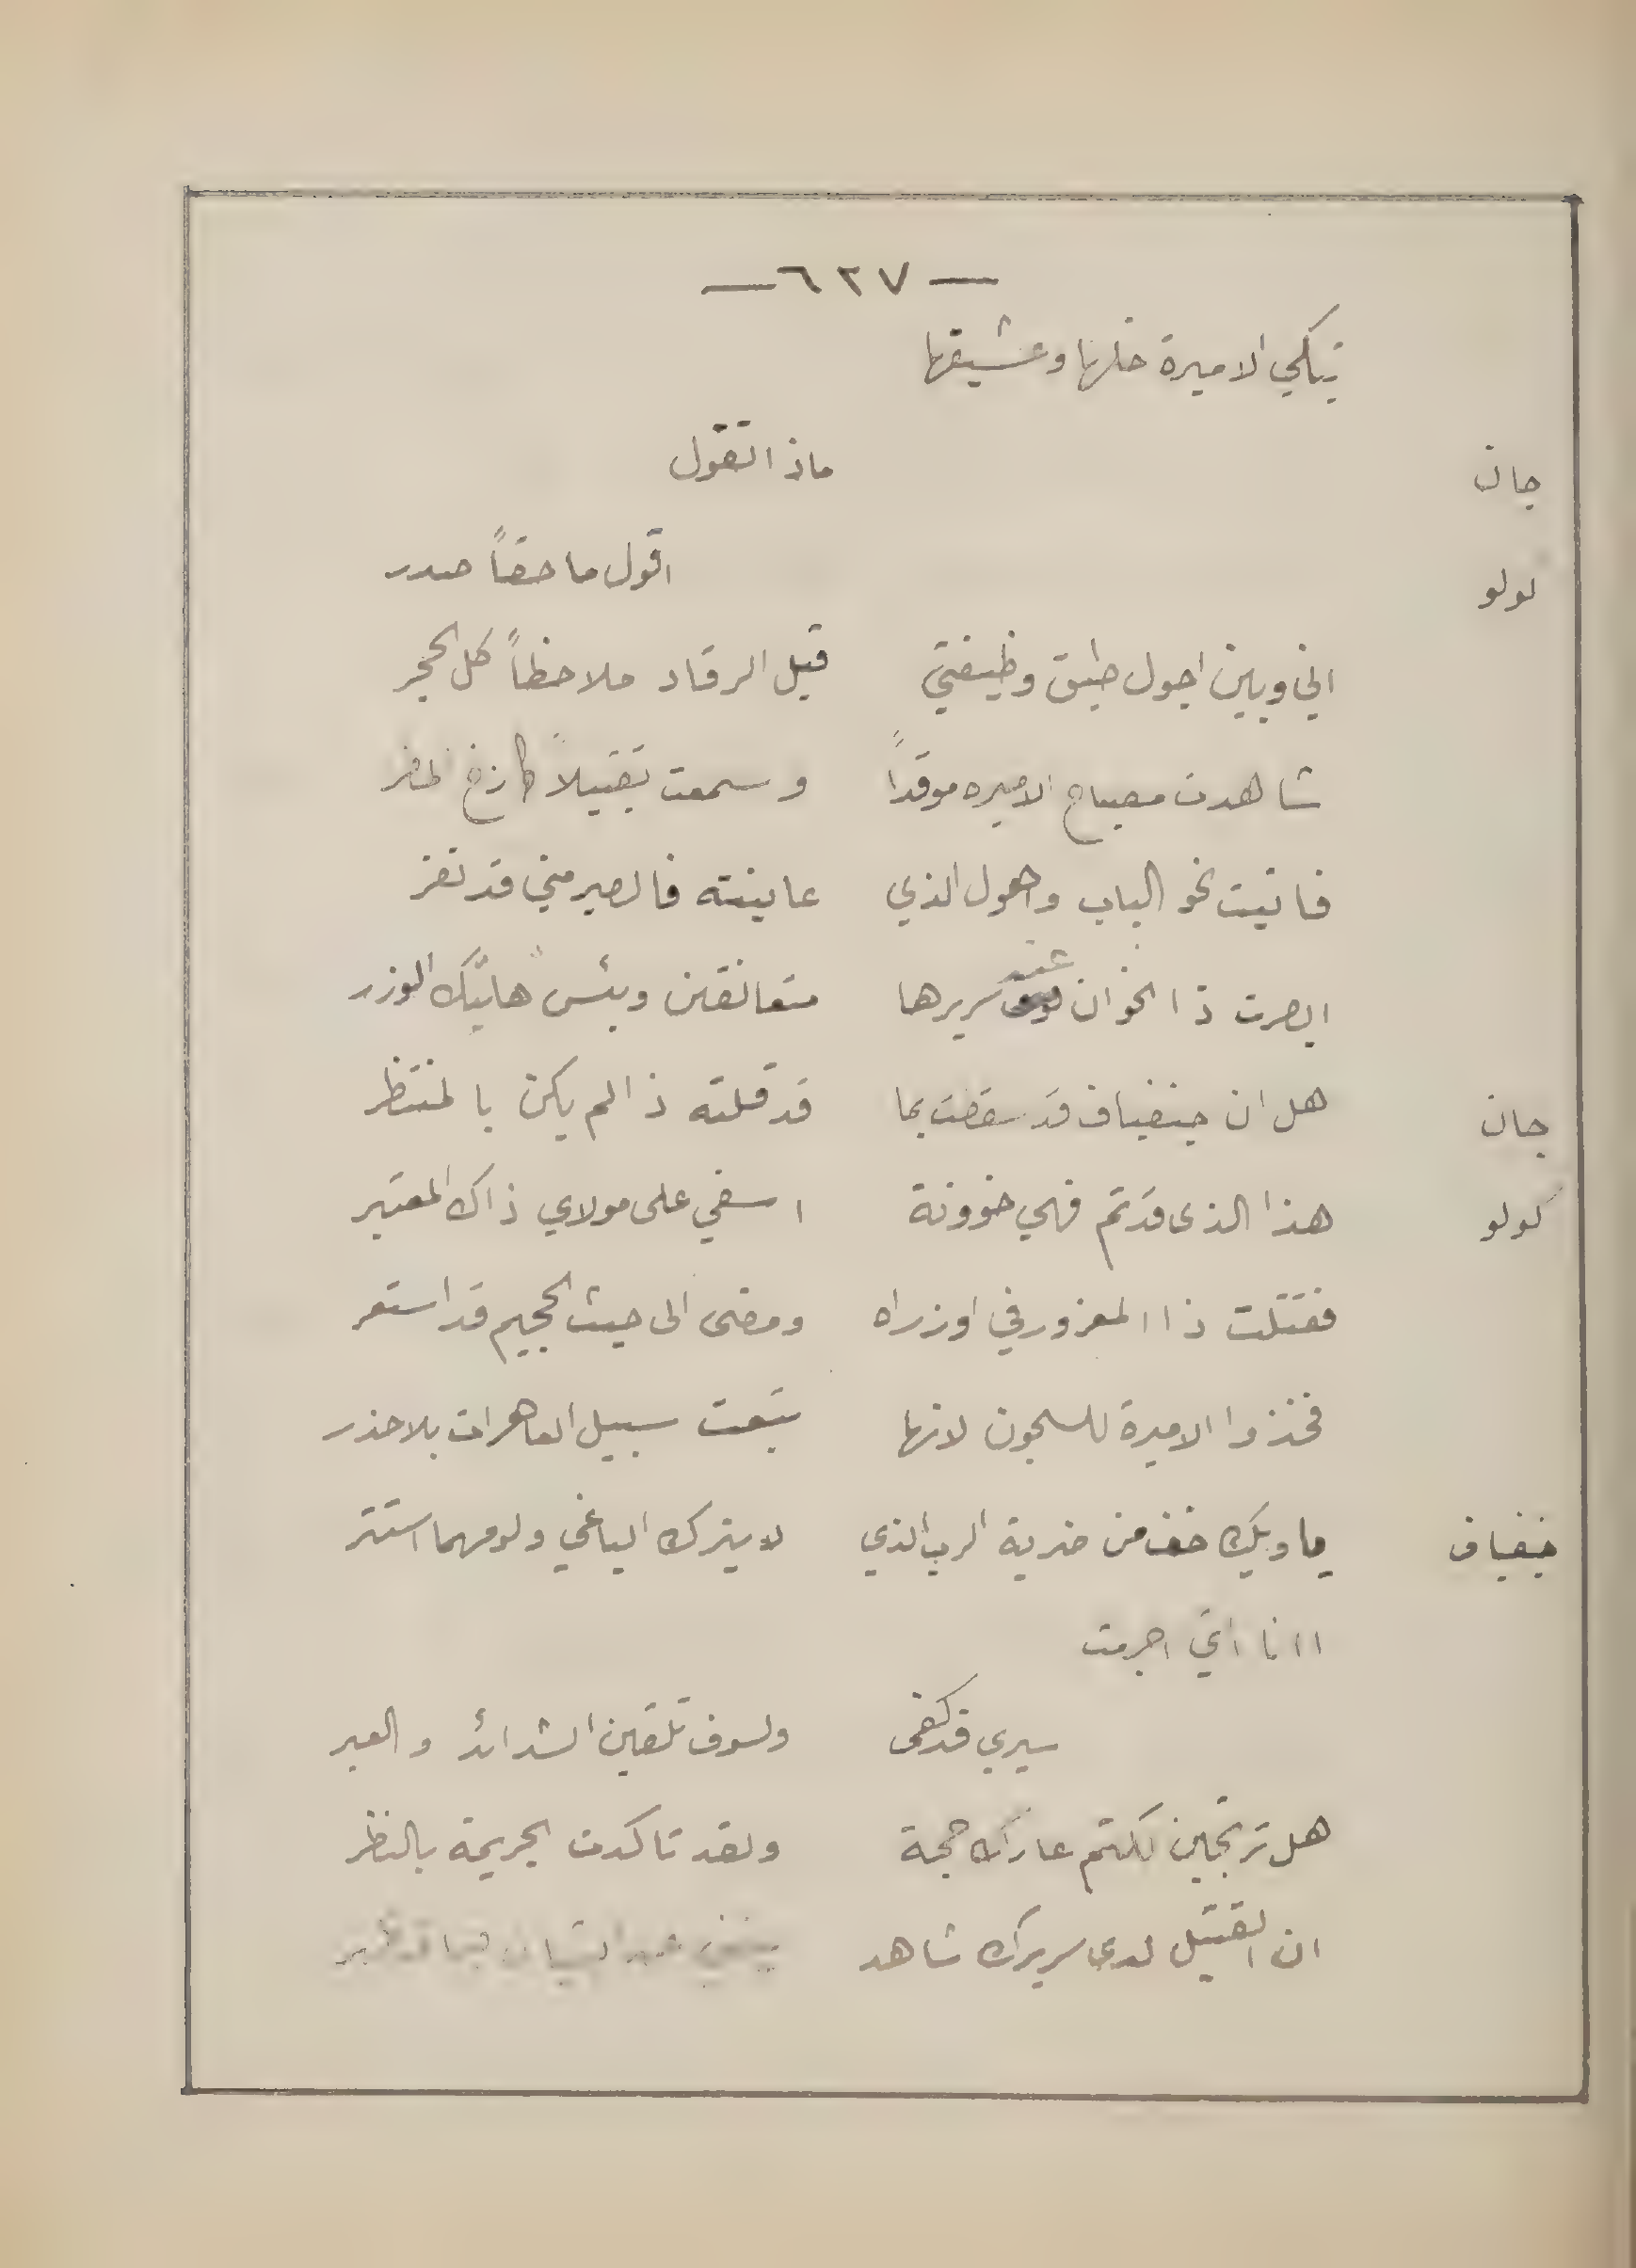 — ٦٢٧ —
تبكي الاميرة خلها وعشيقها
جان ماذا تقول
لولو اقول ما حقاً صدر
اني وبين اجول طبق وظيفتي قبل الرقاد ملاحظاً كل الحجر
شاهدت مصباح الاميره موقداً وسمعت تقبيلاً
فاتيت نحو الباب واهول الذي عاينته فالصبر مني قد نفر
ابصرت ذا الخوان عند سريرها متعانقين وبئس هاتيك الوزر
جان هل ان جنفياف قد سقطت بما قد قلته ذا لم يكن بالمنتظر
كولو هذا الذى قد تم فهي خوونة اسفي على مولاي ذاك المعتبر
فقتلت ذا المغرور في اوزراه ومضى الى حيث الجحيم قد استعر
فخذوا الاميرة للسجون لانها تبعت سبيل العاهرات بلا حذر
جنفياف يا ويلك خف من ضربة الرب الذي لا يترك الباغي ولو مهما استتر
اانا التي اجرمت
سيري قد كفى ولسوف تلقين الشدائد والعبر
هل ترتجين لكتم عارك حجة ولقد تاكدت الجريمة بالنظر
ان القتيل لدى سريرك شاهد